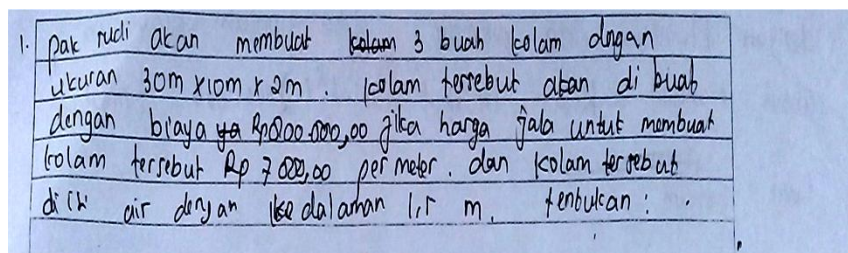 1. pak rudi akan membuat kolam 3 buah kolam dngan
ukuran 30m x10m x 2m. kolam tersebut akan di buat
dengan biaya ya Rp200.000,00 jika harga jala untuk membuat
kolam tersebut Rp 7000,00 per meter. dan kolam tersebut
di isi air dengan kedalaman 1,5 m. tentukan :